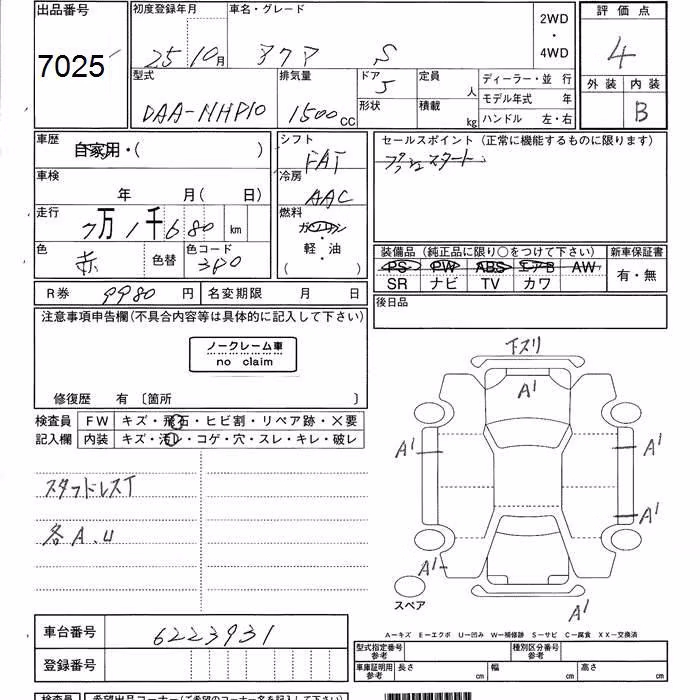 出品番号 初度登録年月 車名・グレード 2WD・4WD 評価点
7025 25 10月 アクア S 4
型式 排気量 ドア 定員 ディーラー・並行 外装 内装
DAA-NHP10 1500cc 5 人 モデル年式 年 B
形状 積載 kg ハンドル 左・右
車歴 シフト セールスポイント（正常に機能するものに限ります）
自家用・( ) FAT プッシュスタート
車検 冷房
年 月(日) AAC
走行 燃料
7万1千680 km ガソリン・軽・油
色 色替 色コード 装備品（純正品に限り○をつけて下さい） 新車保証書
赤 3P0 ( ) PS PW ABS エアB AW 有・無
SR ナビ TV カワ
R券 9980円 名変期限 月 日 後日品
注意事項申告欄(不具合内容等は具体的に記入して下さい)
ノークレーム車
no claim
修復歴 有〔箇所 〕
検査員 FW キズ・飛石・ヒビ割・リペア跡・×要
記入欄 内装 キズ・汚レ・コゲ・穴・スレ・キレ・破レ
下スリ
A1
A1 A1
A1
A1
A1
スタッドレスT
各A.U
スペア
A-キズ E-エクボ U-凹み W-補修跡 S-サビ C-腐食 XX-交換済
車台番号 6223931
登録番号
型式指定番号 参考 種別区分番号 参考
車庫証明用 参考 長さ cm 幅 cm 高さ cm
検査員 希望出品コーナー(ご希望のコーナー名を記入して下さい)